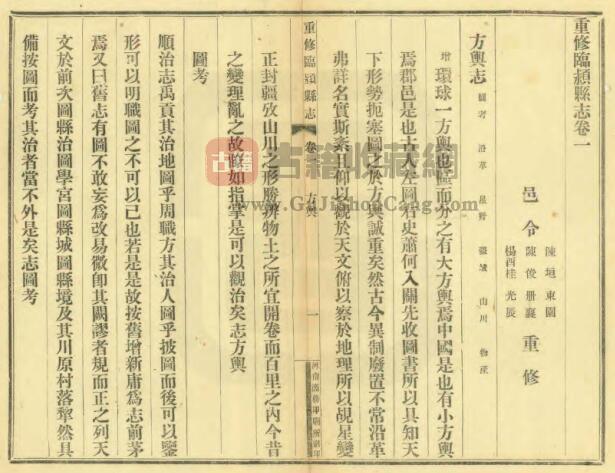 重修臨潁縣志卷一
邑令
陳垣東園
陳俊册襄
楊酉桂光辰
重修
方輿志
圖考 沿革 星野 疆域 山川 物産
增環球一方輿也區而分之有大方輿焉中國是也有小方輿
焉郡邑是也古人左圖右史蕭何入關先收圖書所以具知天
下形勢扼塞圖之於方輿誠重矣然古今異制廢置不常沿革
弗詳名實斯紊且仰以觀於天文俯以察於地理所以覘星變
重修臨潁縣志
卷一 方輿
一
正封疆攷山川之形勝辨物土之所宜開卷而百里之內今昔
之變理亂之故瞭如指掌是可以觀治矣志方輿
圖考
順治志禹貢其治地圖乎周職方其治人圖乎披圖而後可以鑒
形可以明職圖之不可以已也若是是故按舊增新庸爲志前茅
焉又曰舊志有圖不敢妄爲改易微卽其闕謬者規而正之列天
文於前次圖縣治圖學宮圖縣城圖縣境及其川原村落犂然具
備按圖而考其治者當不外是矣志圖考
古籍
古籍收藏网
www.GuJiShouCang.com